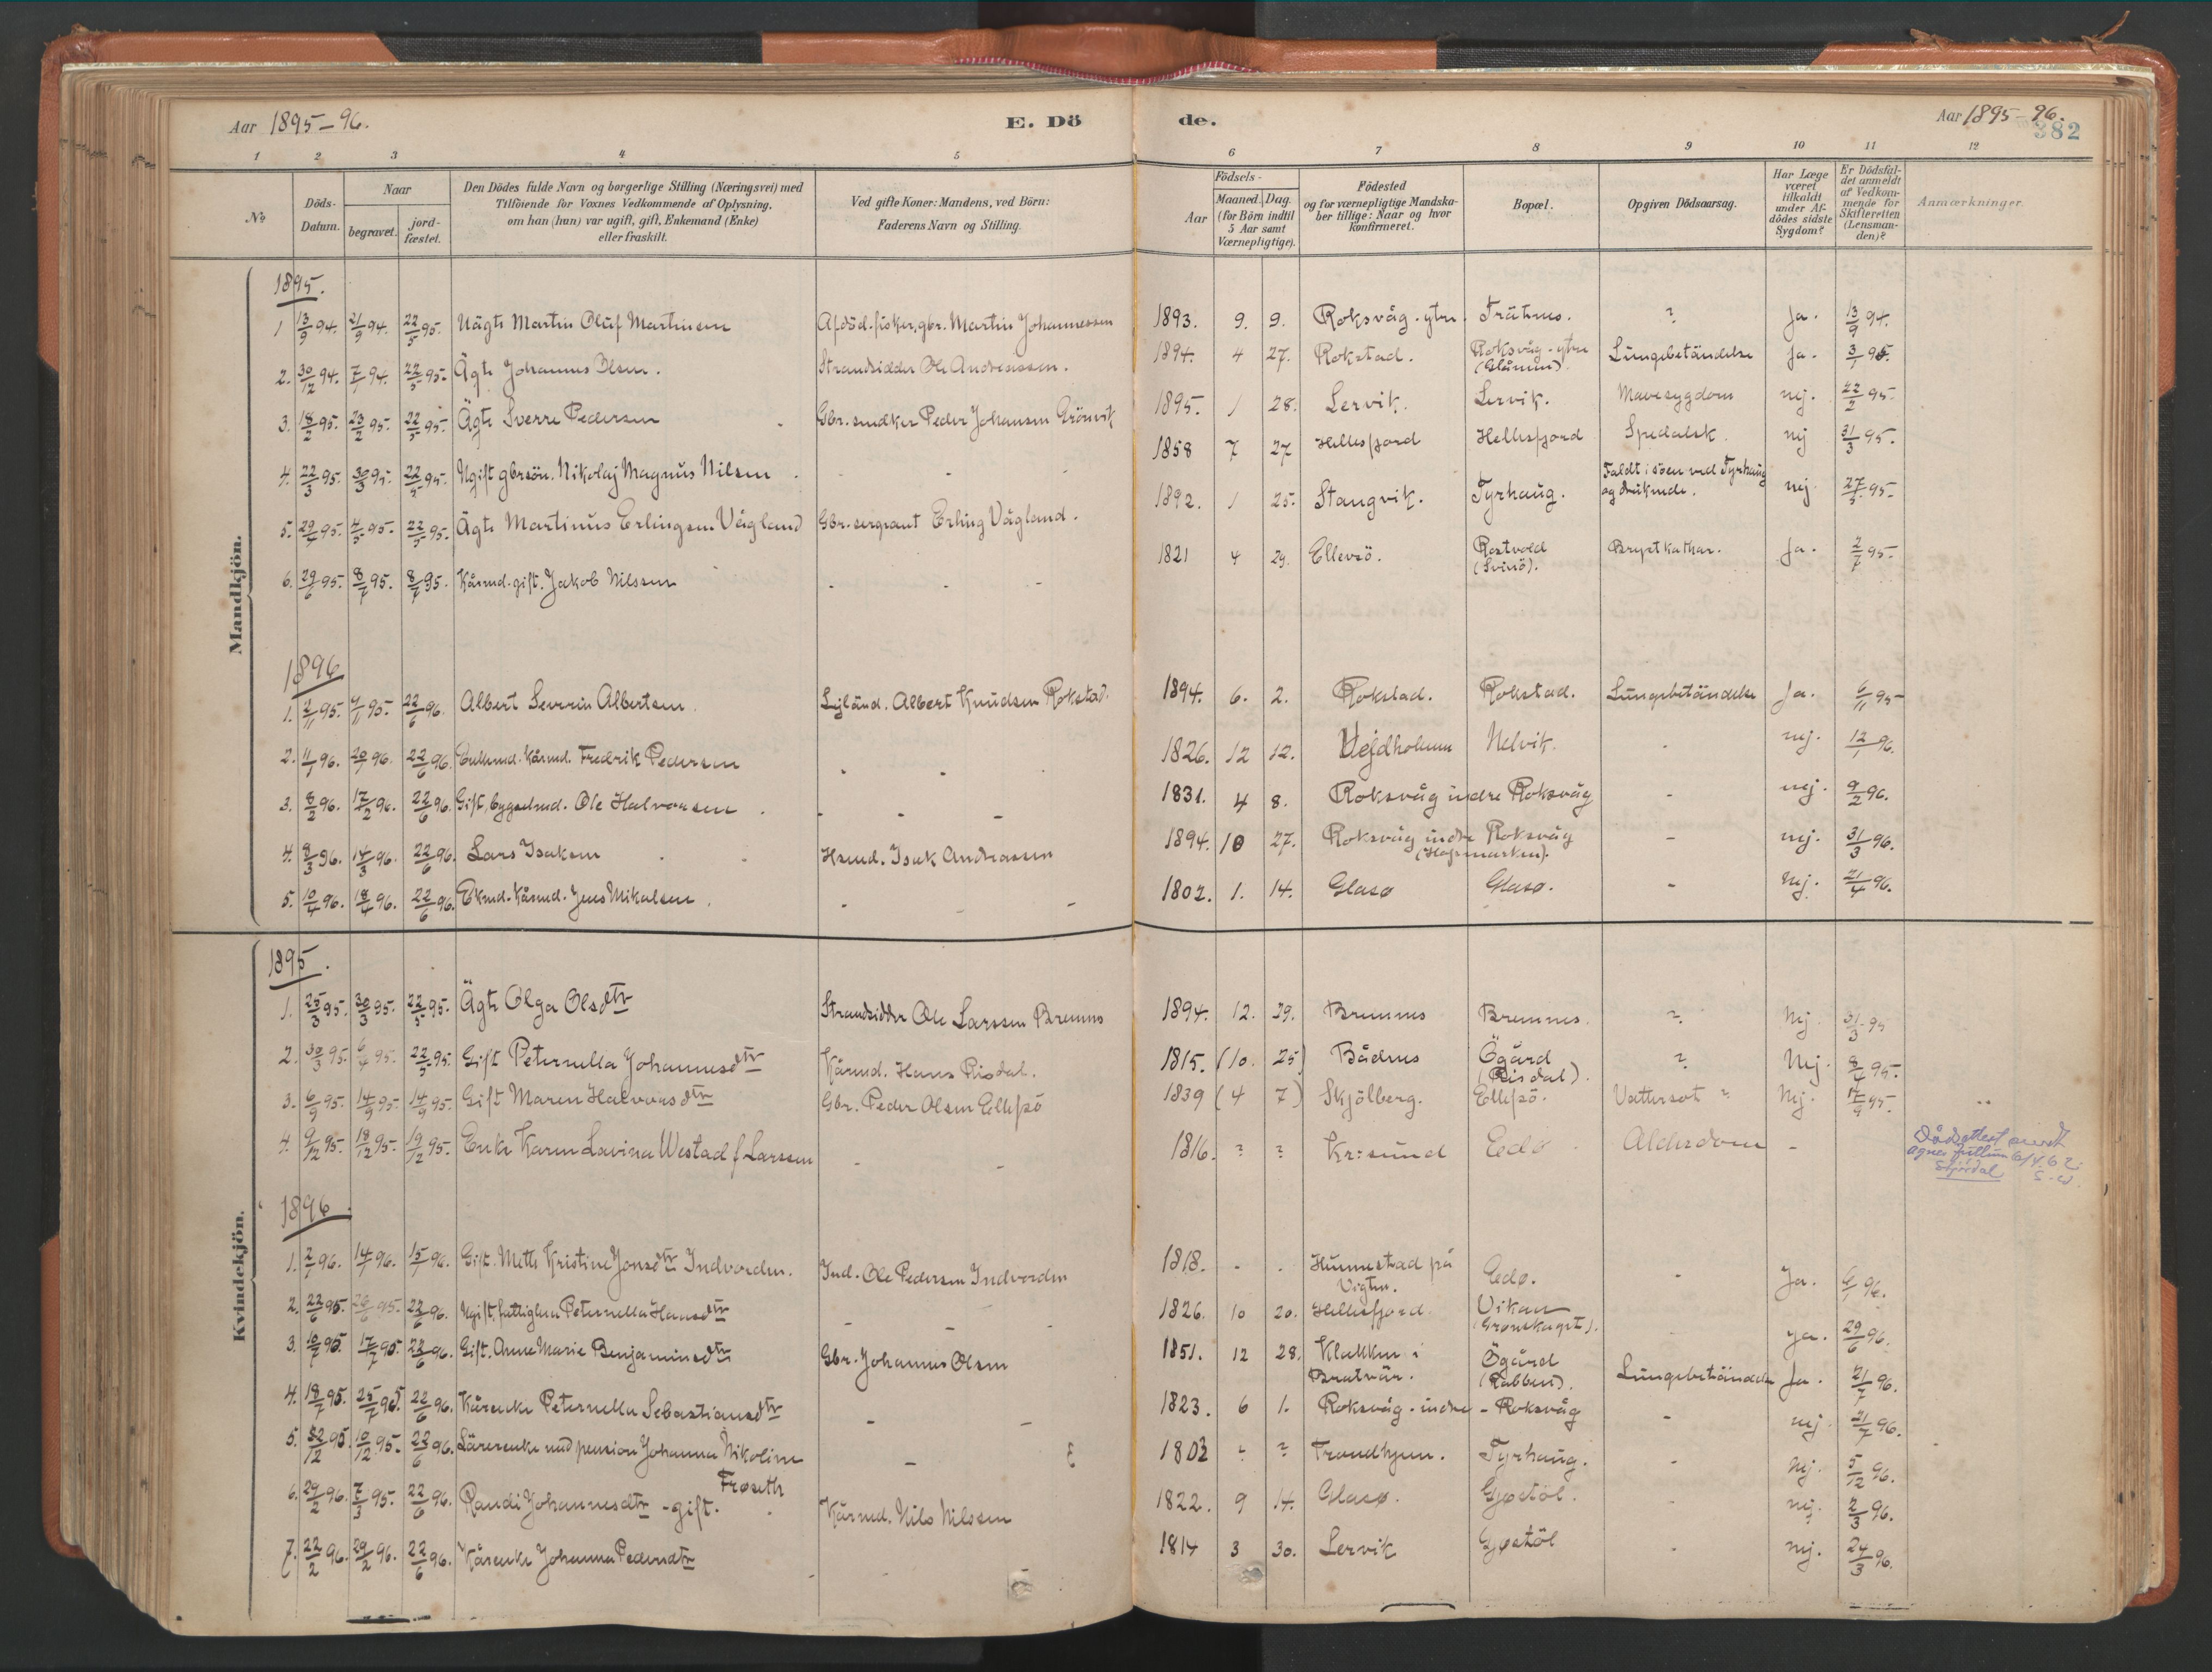 Aar 1895-96. E. Dö de. Aar 1895-96.
382
1 2 3 4 5 6 7 8 9 10 11 12
No
Döds-Datum.
Naar
begravet.
jordfæstet.
Den Dödes fulde Navn og borgerlige Stilling (Næringsvei) med
Tilföiende for Voxnes Vedkommende af Oplysning,
om han (hun) var ugift, gift, Enkemand (Enke)
eller fraskilt.
Ved gifte Koner: Mandens, ved Börn:
Faderens Navn og Stilling.
Födsels-
Aar
Maaned. Dag.
(for Börn indtil
5 Aar samt
Værnepligtige).
Födested
og for værnepligtige Mandskaber
tillige: Naar og hvor
konfirmeret.
Bopæl.
Opgiven Dödsaarsag.
Har Læge
været
tilkaldt
under Afdödes
sidste
Sygdom?
Er Dödsfaldet
anmeldt
af Vedkommende
for
Skifteretten
(Lensmanden)?
Anmærkninger.
Mandkjön.
1895.
1 13/9 94. 21/9 94. 22/5 95. Uägte Martin Oluf Martinsen Afdöd. fisker, gbr. Martin Johannessen 1893. 9. 9. Roksvåg-ytre. Trähus. ? Ja. 13/9 94.
2. 30/12 94. 7/1 94. 22/5 95. Ägte Johannes Olsen. Strandsidder Ole Andreassen. 1894. 4 27. Rokstad. Roksvåg-ytre Lungebetändelse Ja. 3/1 95.
3. 18/2 95. 23/2 95. 22/5 95. Ägte Sverre Pedersen Gbr. snedker Peder Johansen Grönvik 1895. 1 28. Lervik. Lervik. Mavesygdom nej. 22/2 95.
4. 22/3 95. 30/3 95. 22/5 95. Ugift gbrsön. Nikolaj Magnus Nilsen - - 1858 7 27 Hellesfjord Hellesfjord Spedalsk. nej 31/3 95.
5. 29/4 95. 4/5 95. 22/5 95. Ägte Martinus Erlingsen Vågland Gbr. sergeant Erling Vågland. 1892. 1 25. Stangvik. Tyrhaug. Faldt i söen ved Tyrhaug
og druknede. nej. 27/5 95.
6. 29/6 95. 8/7 95. 8/7 95. Kårmd. gift. Jakob Nilssen - - - 1821 4 29. Ellevsö. Rostvold
(Svinö). Brystkathar. Ja. 2/7 95.
1896
1. 2/11 95. 4/11 95. 22/6 96. Albert Severin Albertsen. Albert Knudsen Rokstad. 1894. 6. 2. Rokstad. Rokstad. Lungebetändelse Ja. 6/11 95
2. 11/1 96. 20/1 96. 22/6 96. Enkemd. kårmd. Fredrik Pedersen - - 1826. 12 12. Vejdholmen Nelvik. - nej. 12/1 96.
3. 8/2 96. 17/2 96. 22/6 96. Gift, bygselmd. Ole Halvorsen - - - 1831. 4 8. Roksvåg indre Roksvåg - nej. 9/2 96.
4. 8/3 96. 14/3 96. 22/6 96. Lars Isaksen Hsmd. Isak Andreassen 1894. 10 27. Roksvåg indre Roksvåg - nej. 31/3 96.
5. 10/4 96. 18/4 96. 22/6 96. Ekmd. Kårmd. Jens Mikalsen. - - - 1802. 1. 14. Glasø Glasø. - Nej. 21/4 96.
Kvindekjön.
1895.
1. 25/3 95. 30/3 95. 22/5 95. Ägte Olga Olsdtr Strandsidder Ole Larssen Bremnes 1894. 12. 29. Bremnes Bremnes. ? Nej. 31/3 95
2. 30/3 95. 6/4 95. 22/5 95. Gift Peternella Johannesdtr Kårmd. Hans Risdal. 1815. (10. 25) Bådnes Ögård
(Risdal). ? Nej. 8/4 95.
3. 6/9 95. 14/9 95. 14/9 95. Gift Maren Halvorsdtr Gbr. Peder Olsen Ellefsö 1839 (4 7) Skjölberg. Ellefsö. Vattersot ? Nej. 17/9 95.
4. 9/12 95. 18/12 95. 19/12 95. Enke Karen Lavina Westad f. Larssen - - 1816. ? ? Kr:sund Edø. Alderdom -
Dödsattest
6/4.62.
1896.
1. 2/1 96. 14/1 96. 15/1 96. Gift. Mette Kristine Jonsdtr Indvorden. Ind. Ole Pedersen Indvorden 1818. - . Hunnestad på
Vigten. Edø. - Ja. 6/1 96.
2. 22/6 95. 26/6 95. 22/6 96. Ugift, fattiglem Peternella Hansdtr - - - 1826. 10 20. Hellesfjord Vikan
(Grönskaget). ja. 29/6 96.
3. 10/7 95. 17/7 95. 22/6 96. Gift. Anne Marie Benjaminsdtr Gbr. Johannes Olsen 1851. 12 28. Klakken i
Bratvär. Ögård
(Rabben). Lungebetändelse Ja. 21/7 96.
4. 18/7 95. 25/7 95. 22/6 96. Kårenke Peternella Sebastiansdtr - - 1823. 6 1. Roksvåg-indre - Roksvåg - nej. 21/7 96.
5. 10/12 95. 22/6 96. Lärerenke med pension Johanna Nikoline
Frøseth - 1802 ? ? Trondhjem. Tyrhaug. - Nej. 5/12 96.
6. 29/2 96. 7/3 95. 22/6 96. Randi Johannesdtr - gift. Kårmd. Nils Nilssen 1822. 9 14. Glasø. Gjøstöl. - nej. 2/3 96.
7. 22/2 96. 29/2 96. 22/6 96. Kårenke Johanna Pedersdtr - - 1814 3 30. Lervik Gjøstöl - nej. 24/3 96.